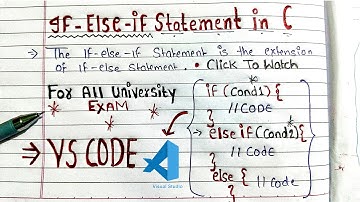 If-Else-if Statement in C
→ The If-else-if Statement is the extension
of If-else Statement. • Click To Watch
For All University
EXAM
⇒ VS CODE
Visual Studio
if (Cond1) {
// CODE
}
else if (Cond2) {
// Code
}
else { // Code
}